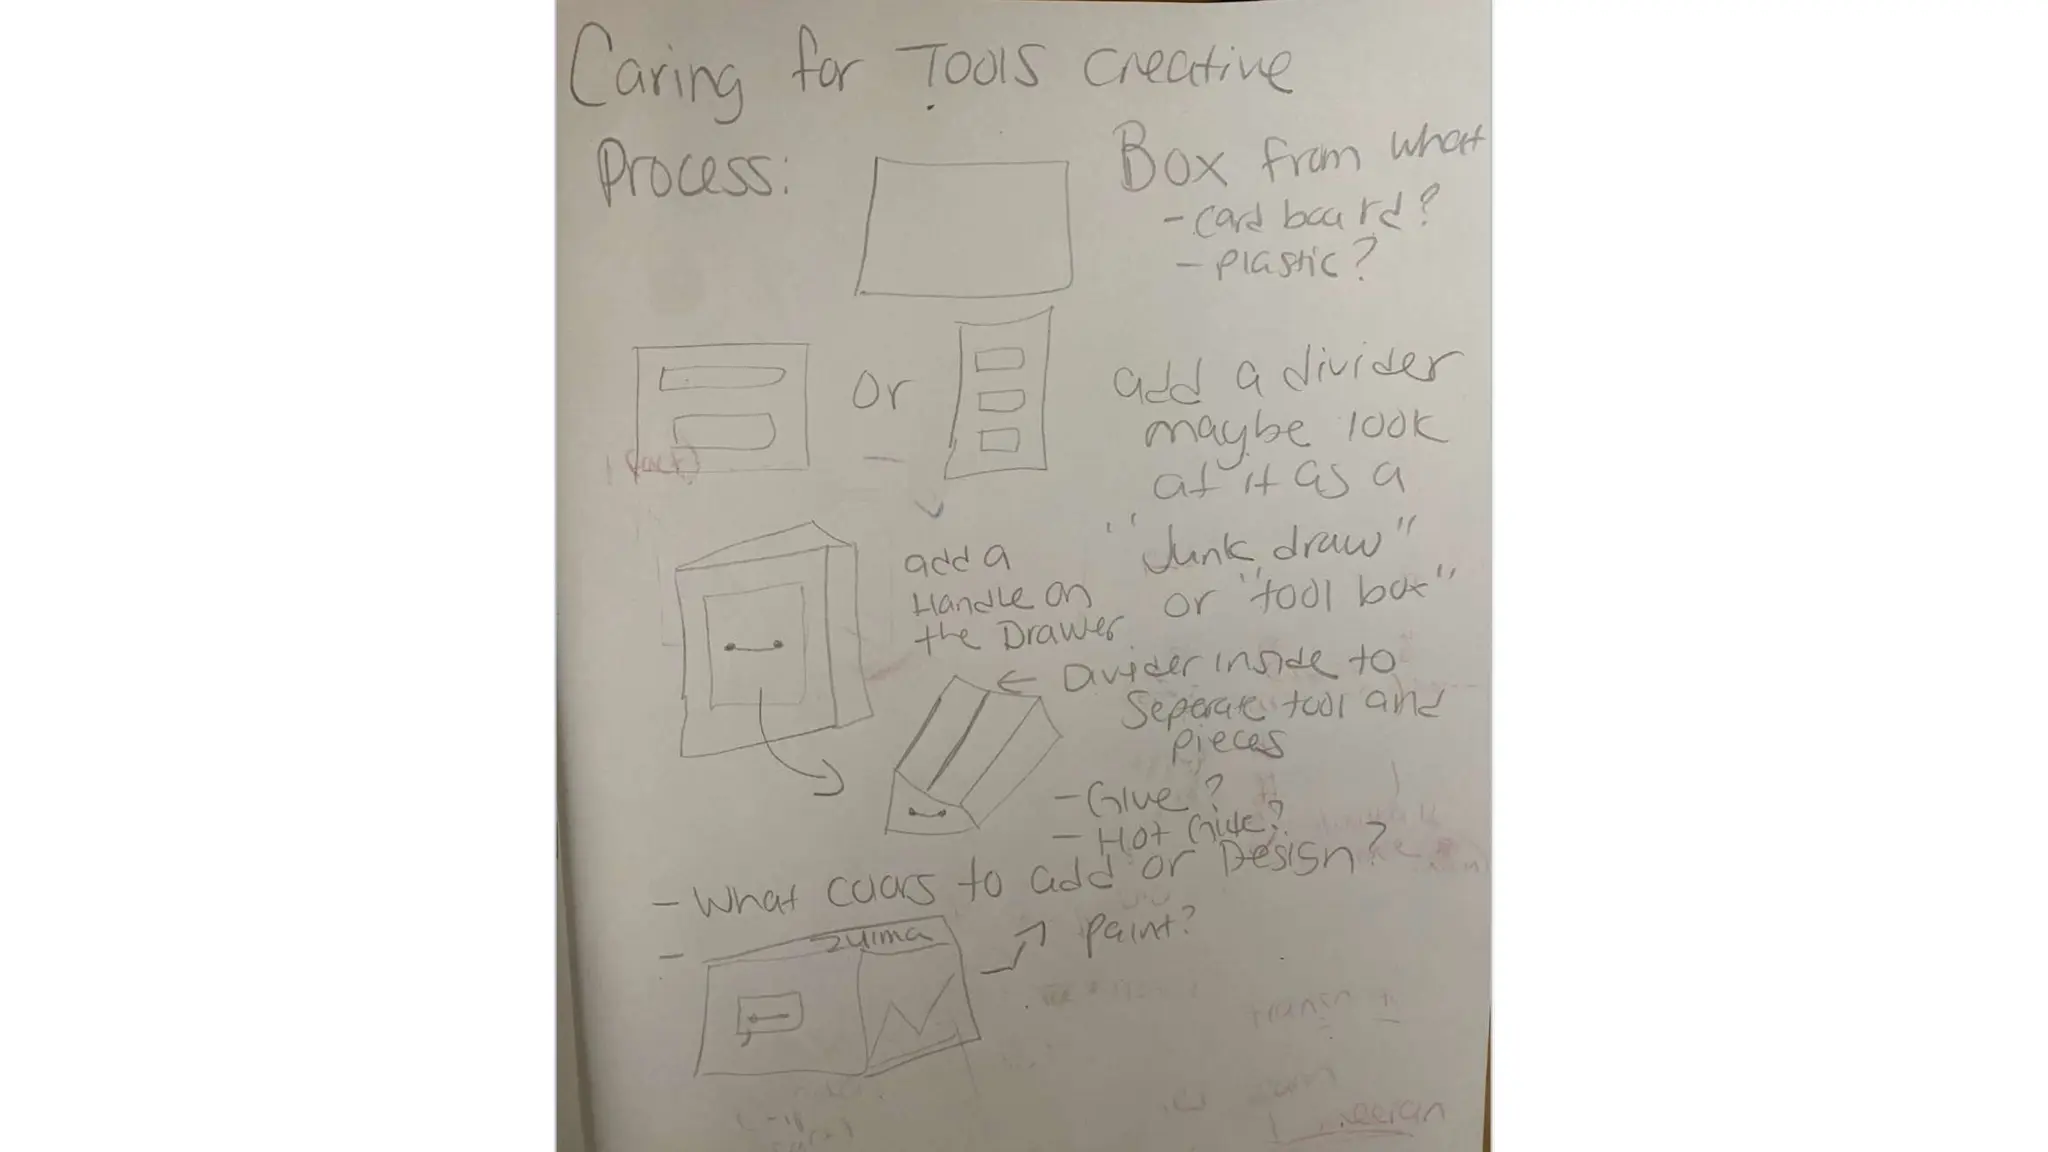 Caring for Tools Creative
Process:
Box from what
- cardboard?
- plastic?
or
add a divider
maybe look
at it as a
"Junk draw"
or "tool box"
add a
Handle on
the Drawer
← Divider inside to
Seperate tool and
pieces
- Glue?
- Hot Glue?
- What colors to add or Design?
-
Zulma
paint?